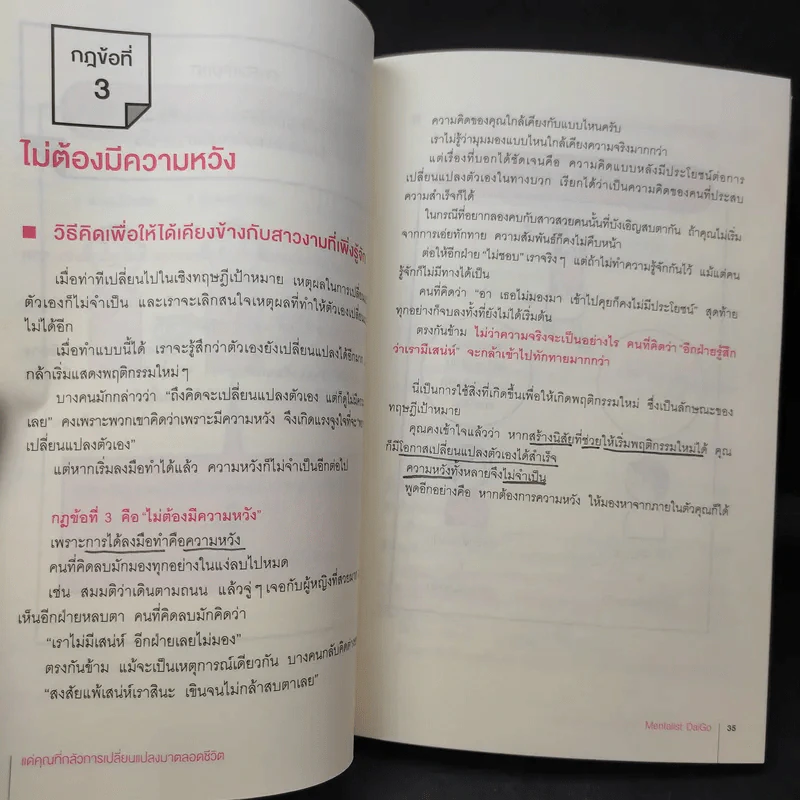 กฎข้อที่
3
ไม่ต้องมีความหวัง
วิธีคิดเพื่อให้ได้เคียงข้างกับสาวงามที่เพิ่งรู้จัก
เมื่อท่าทีเปลี่ยนไปในเชิงทฤษฎีเป้าหมาย เหตุผลในการเปลี่ยน
ตัวเองก็ไม่จำเป็น และเราจะเลิกสนใจเหตุผลที่ทำให้ตัวเองเปลี่ยน
ไม่ได้อีก
เมื่อทำแบบนี้ได้ เราจะรู้สึกว่าตัวเองยังเปลี่ยนแปลงได้อีก
กล้าเริ่มแสดงพฤติกรรมใหม่ๆ
บางคนมักกล่าวว่า “ถึงคิดจะเปลี่ยนแปลงตัวเอง แต่ก็ดูไม่มี
เลย” คงเพราะพวกเขาคิดว่าเพราะมีความหวัง จึงเกิดแรงจูงใจที่จะ
เปลี่ยนแปลงตัวเอง”
แต่หากเริ่มลงมือทำได้แล้ว ความหวังก็ไม่จำเป็นอีกต่อไป
กฎข้อที่ 3 คือ “ไม่ต้องมีความหวัง”
เพราะการได้ลงมือทำคือความหวัง
คนที่คิดลบมักมองทุกอย่างในแง่ลบไปหมด
เช่น สมมติว่าเดินตามถนน แล้วจู่ๆ เจอกับผู้หญิงที่สวย
เห็นอีกฝ่ายหลบตา คนที่คิดลบมักคิดว่า
“เราไม่มีเสน่ห์ อีกฝ่ายเลยไม่มอง”
ตรงกันข้าม แม้จะเป็นเหตุการณ์เดียวกัน บางคนกลับคิด
“สงสัยแพ้เสน่ห์เราสินะ เขินจนไม่กล้าสบตาเลย”
แด่คุณที่กลัวการเปลี่ยนแปลงมาตลอดชีวิต
ความคิดของคุณใกล้เคียงกับแบบไหนครับ
เราไม่รู้ว่ามุมมองแบบไหนใกล้เคียงความจริงมากกว่า
แต่เรื่องที่บอกได้ชัดเจนคือ ความคิดแบบหลังมีประโยชน์ต่อการ
เปลี่ยนแปลงตัวเองในทางบวก เรียกได้ว่าเป็นความคิดของคนที่ประสบ
ความสำเร็จก็ได้
ในกรณีที่อยากลองคบกับสาวสวยคนนั้นที่บังเอิญสบตากัน ถ้าคุณไม่เริ่ม
จากการเอ่ยทักทาย ความสัมพันธ์ก็คงไม่คืบหน้า
ต่อให้อีกฝ่าย “ไม่ชอบ” เราจริงๆ แต่ถ้าไม่ทำความรู้จักกันไว้ แม้แต่คน
รู้จักก็ไม่มีทางได้เป็น
คนที่คิดว่า “อา เธอไม่มองมา เข้าไปคุยก็คงไม่มีประโยชน์” สุดท้าย
ทุกอย่างก็จบลงทั้งที่ยังไม่ได้เริ่มต้น
ตรงกันข้าม ไม่ว่าความจริงจะเป็นอย่างไร คนที่คิดว่า “อีกฝ่ายรู้สึก
ว่าเรามีเสน่ห์” จะกล้าเข้าไปทักทายมากกว่า
นี่เป็นการใช้สิ่งที่เกิดขึ้นเพื่อให้เกิดพฤติกรรมใหม่ ซึ่งเป็นลักษณะของ
ทฤษฎีเป้าหมาย
คุณคงเข้าใจแล้วว่า หากสร้างนิสัยที่ช่วยให้เริ่มพฤติกรรมใหม่ได้ คุณ
ก็มีโอกาสเปลี่ยนแปลงตัวเองได้สำเร็จ
ความหวังทั้งหลายจึงไม่จำเป็น
พูดอีกอย่างคือ หากต้องการความหวัง ให้มองหาจากภายในตัวคุณก็ได้
Mentalist DaiGo
35